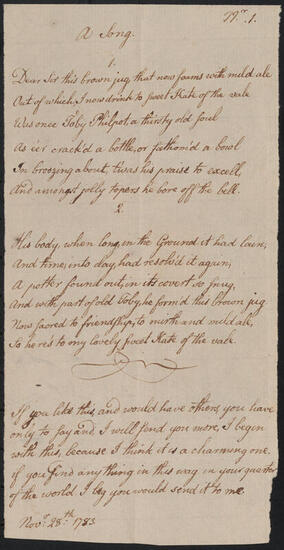 Nr. 1.
A Song.
1.
Dear Sir this brown jug, that now foams with mild ale
Out of which I now drink to sweet Kate of the vale
Was once Toby Philpot, a thirsty old soul
As e'er crack'd a bottle, or fathom'd a bowl
In boozing about, twas his praise to excell,
And amongst jolly topers he bore off the bell.
2.
His body, when long, in the Ground it had lain,
And time, into clay, had resolv'd it again,
A potter found out, in its covert so snug,
And with part of old Toby, he form'd this brown jug
Now sacred to friendship, to mirth and mild ale,
So heres to my lovely sweet Kate of the vale.
If you like this, and would have others, you have
only to say and I will send you more, I begin
with this, because I think it is a charming one.
if you find any thing in this way in your quarter
of the world I beg you would send it to me
Novr. 28th. 1783